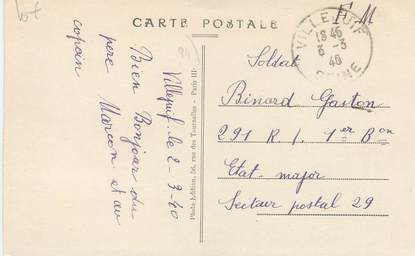 CARTE POSTALE
F. M
VILLEJUIF
18 45
6 - 3
40
SEINE
Villejuif. le 2-3-40
Bien Bonjour du
pere Marion et au
copain
Photo-Édition, 56, rue des Tournelles - Paris III
Soldat
Binard Gaston
291 R. I. 1er Bon
Etat-major
Secteur postal 29